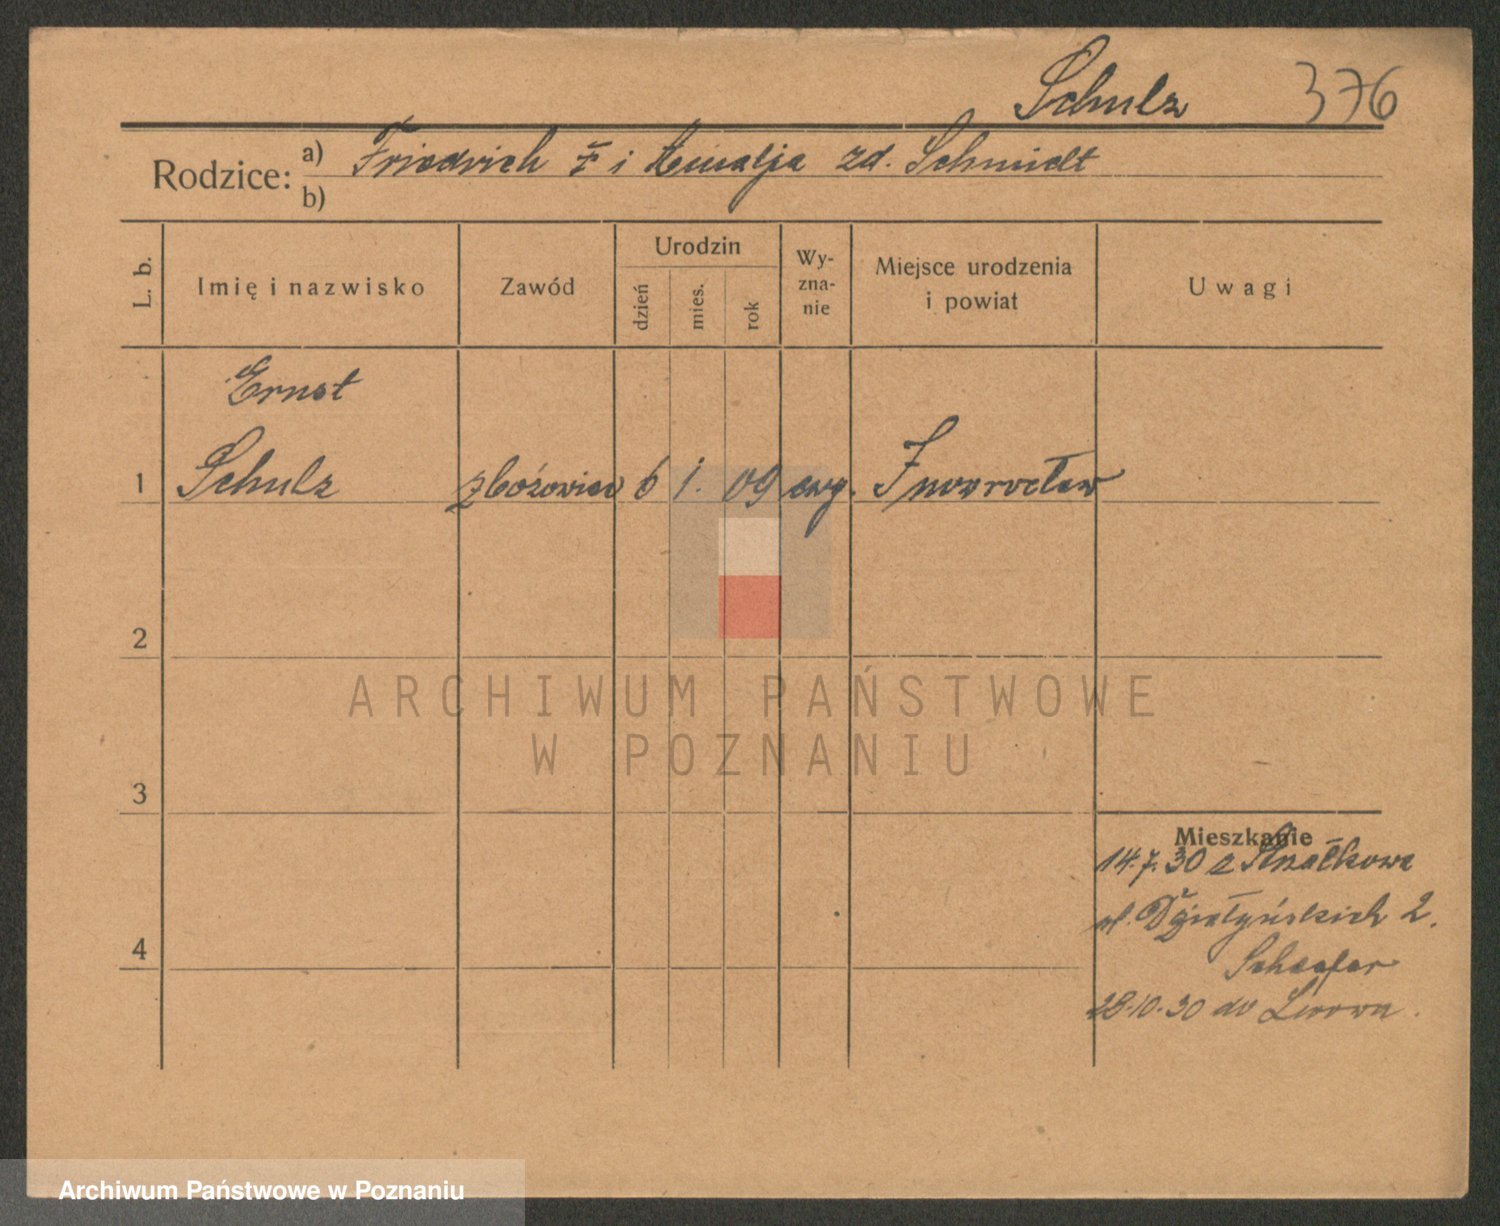 Schulz 376
Rodzice: a) Friedrich i Amalja zd. Schmidt
b)
L. b.
Imię i nazwisko
Zawód
Urodzin
dzień
mies.
rok
Wy-
zna-
nie
Miejsce urodzenia
i powiat
Uwagi
Ernst
1 Schulz zbożowiec 6 1. 09 ewg. Inowrocław
2
ARCHIWUM PAŃSTWOWE
W POZNANIU
3
Mieszkanie
14.7.30 z
ul. Działyńskich 2.
4
Schaefer
28.10.30 do Lwowa.
Archiwum Państwowe w Poznaniu